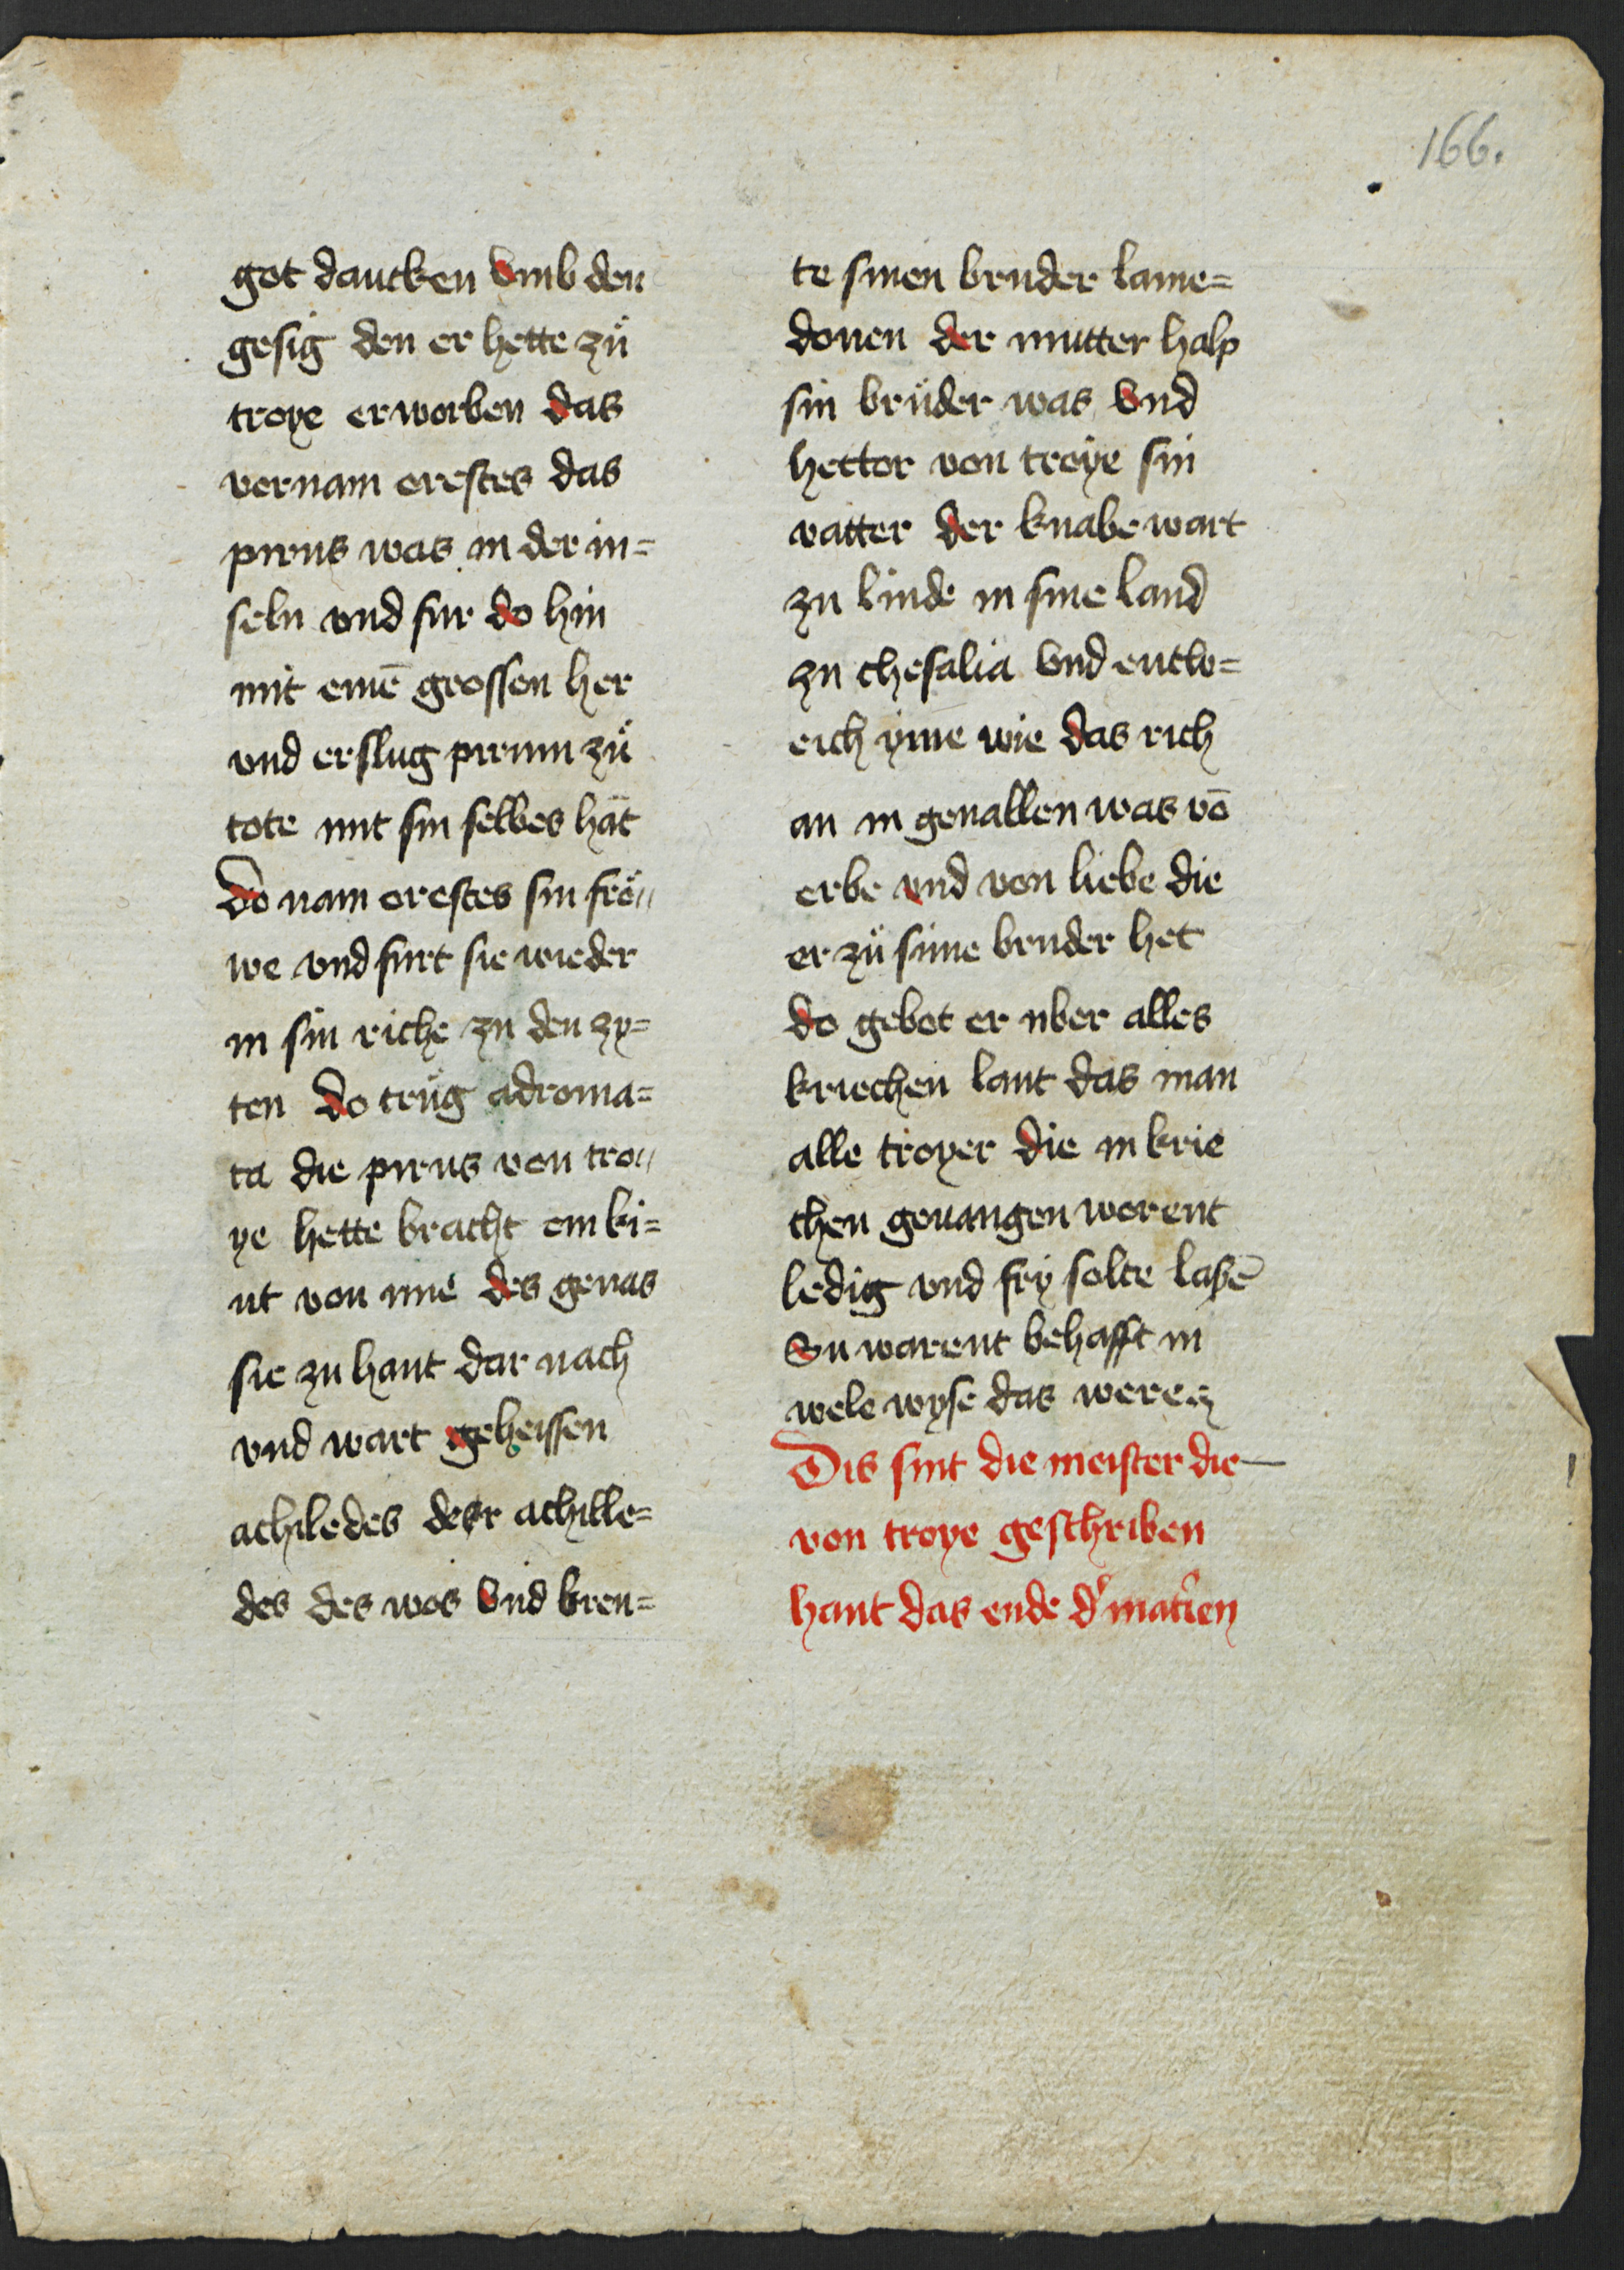 166.
got dancken vmb den
gesig den er hette zuͦ
troye erworben das
vernam orestes das
pirus was in der in=
seln vnd fur do hin
mit eine̅ grossen her
vnd erslug pirum zuͦ
tote mit sin selbes ha̅t
do nam orestes sin fro͛=
we vnd furt sie wieder
in sin riche zu den zy=
ten do truͦg adroma=
ta die pirus von tro=
ye hette bracht ein ki=
nt von ime des genas
sie zu hant dar nach
vnd wart geheissen
achiledes deser achille=
des des wos vnd kron=
te sinen bruder lame=
donen der mutter halp
sin bruͦder was vnd
hector von troye sin
vatter der knabe wart
zu linde in sine land
zu thesalia vnd entw=
eich yme wie das rich
an in geuallen was vo̅
erbe vnd von liebe die
er zuͦ sime bruder het
do gebot er uber alles
kriechen lant das man
alle troyer die in krie
chen geuangen worent
ledig vnd fry solte lasse̅
Su warent behafft in
wele wyse das were
Dis sint die meister die
von troye geschriben
hant das ende d͛ mat͛ien